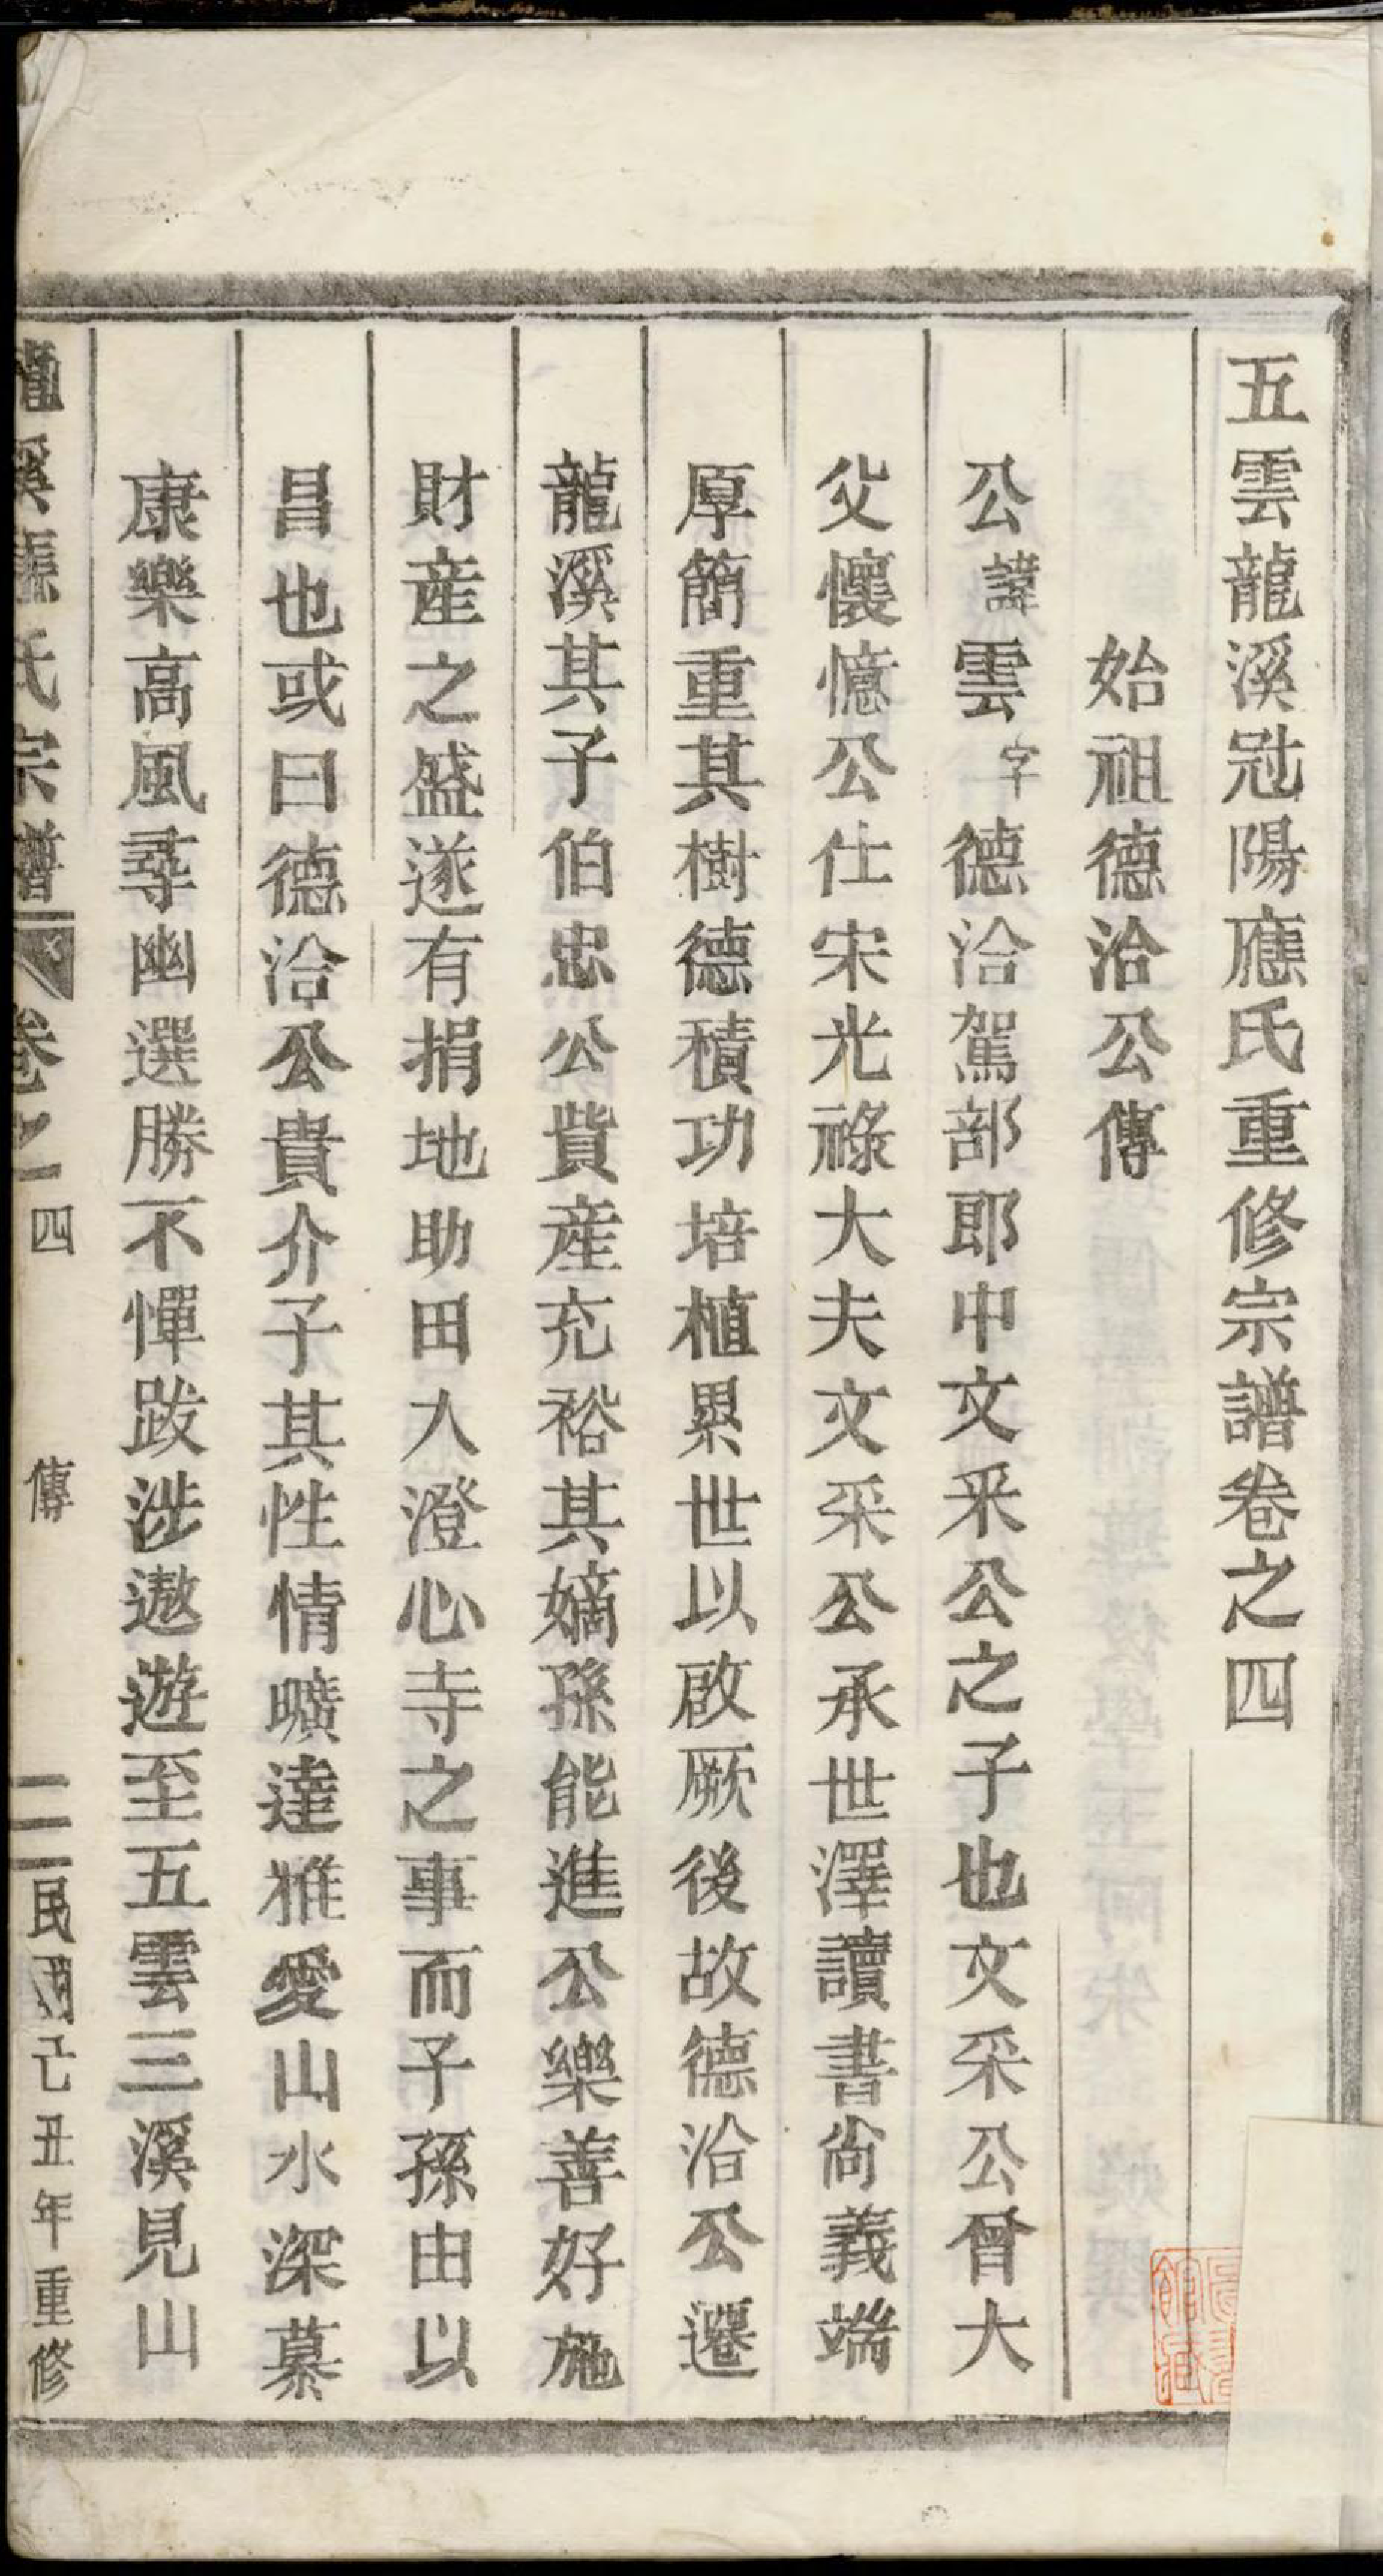 五雲龍溪冦陽應氏重修宗譜卷之四
始祖德洽公傳
公諱雲字德洽駕部郎中文采公之子也文采公曾大
父懷憶公仕宋光祿大夫文采公承世澤讀書尙義端
厚簡重其樹德積功培植累世以啟厥後故德洽公遷
龍溪其子伯忠公貲産充裕其嫡孫能進公樂善好施
財産之盛遂有捐地助田入澄心寺之事而子孫由以
昌也或曰德洽公貴介子其性情曠達雅愛山水深慕
康樂高風尋幽選勝不憚跋涉遨遊至五雲三溪見山
龍溪應氏宗譜 卷之 四 傳 二 民國己丑年重修